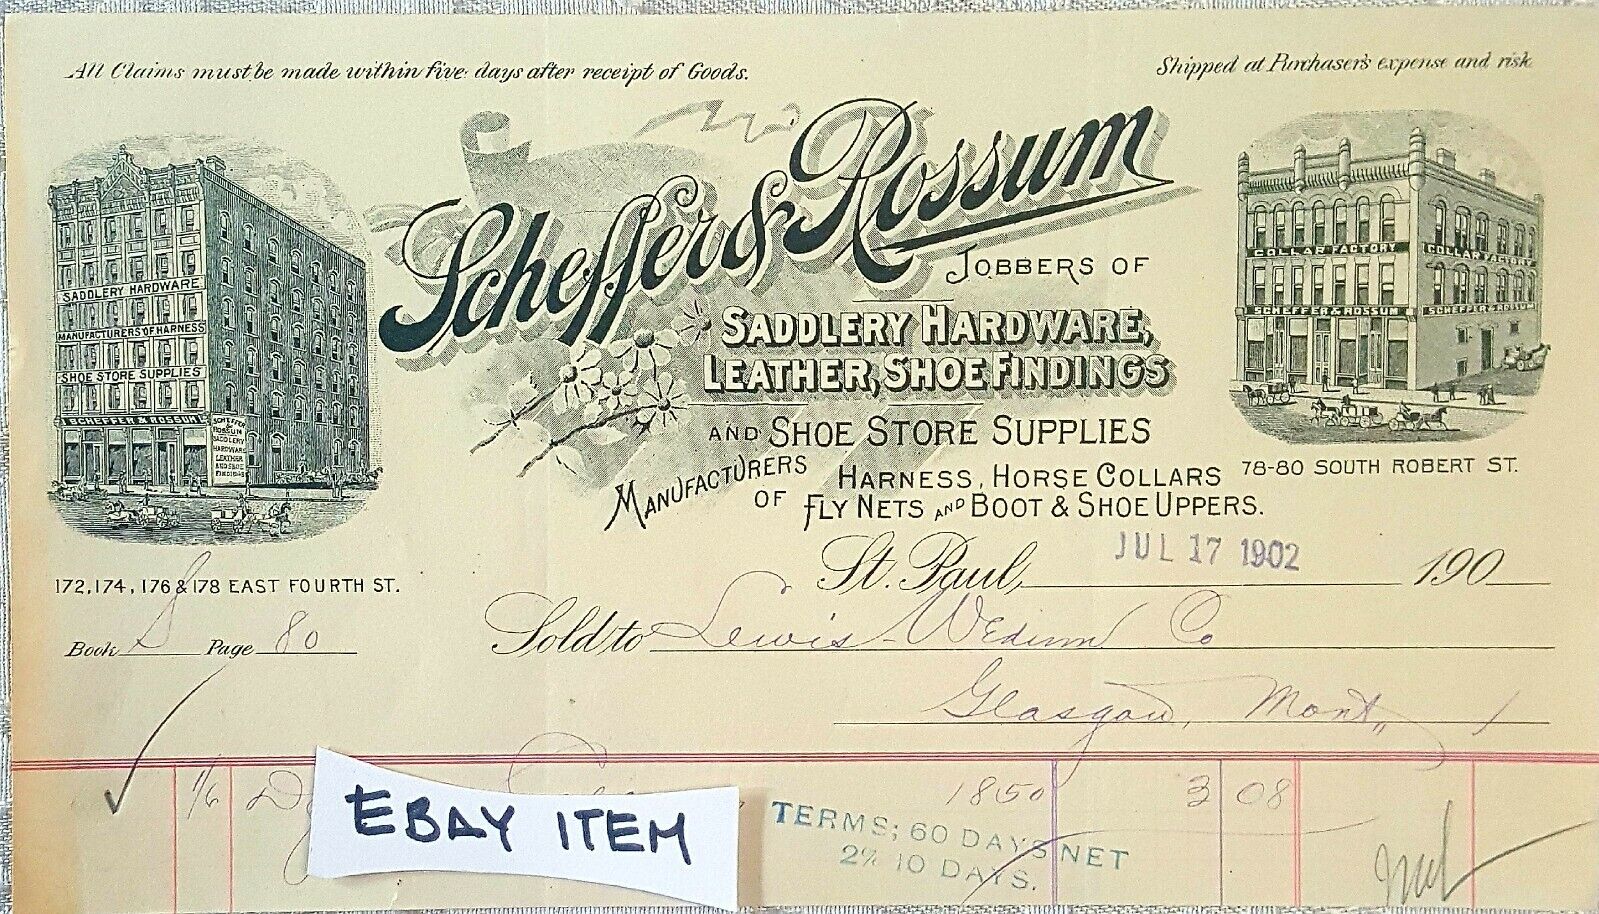 All Claims must be made within five days after receipt of Goods.
Shipped at Purchaser's expense and risk
Scheffer & Rossum
JOBBERS OF
SADDLERY HARDWARE,
LEATHER, SHOE FINDINGS
AND SHOE STORE SUPPLIES
MANUFACTURERS OF HARNESS, HORSE COLLARS
FLY NETS AND BOOT & SHOE UPPERS.
SADDLERY HARDWARE
MANUFACTURERS OF HARNESS
SHOE STORE SUPPLIES
SCHEFFER & ROSSUM
SCHEFFER
& ROSSUM
SADDLERY
HARDWARE
LEATHER
AND SHOE
FINDINGS
172, 174, 176 & 178 EAST FOURTH ST.
COLLAR FACTORY COLLAR FACTORY
SCHEFFER & ROSSUM SCHEFFER & ROSSUM
78-80 SOUTH ROBERT ST.
St. Paul, JUL 17 1902 190
Book Page 80
Sold to Lewis-Wedum Co
Glasgow, Mont,
1/6 1850 3 08
EBAY ITEM
TERMS; 60 DAYS NET
2% 10 DAYS.